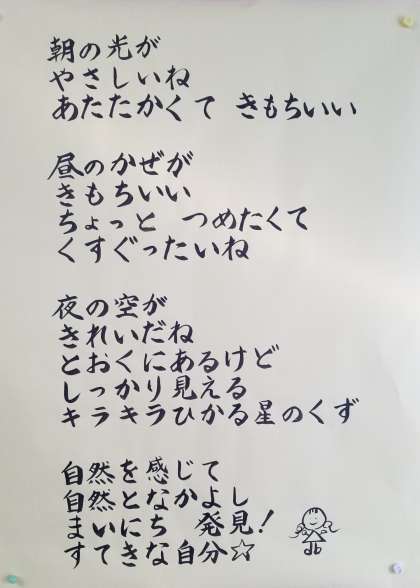 朝の光が
やさしいね
あたたかくて きもちいい
昼のかぜが
きもちいい
ちょっと つめたくて
くすぐったいね
夜の空が
きれいだね
とおくにあるけど
しっかり見える
キラキラひかる星のくず
自然を感じて
自然となかよし
まいにち 発見!
すてきな自分☆